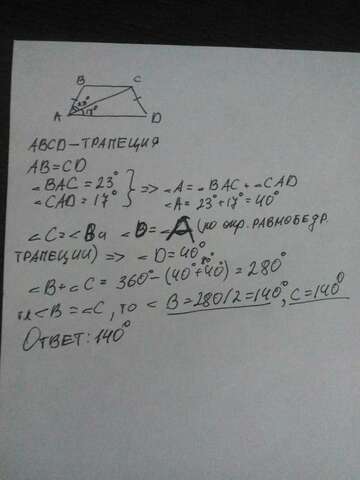 B C
A 23° 17° D
ABCD – ТРАПЕЦИЯ
AB = CD
∠BAC = 23°
∠CAD = 17° } => ∠A = ∠BAC + ∠CAD
∠A = 23° + 17° = 40°
∠C = ∠B и ∠D = ∠A (по опр. РАВНОБЕДР.
ТРАПЕЦИИ) => ∠D = 40°
∠B + ∠C = 360° – (40° + 40°) = 280°
∠B = ∠C, то ∠B = 280/2 = 140°, C = 140°
ОТВЕТ: 140°